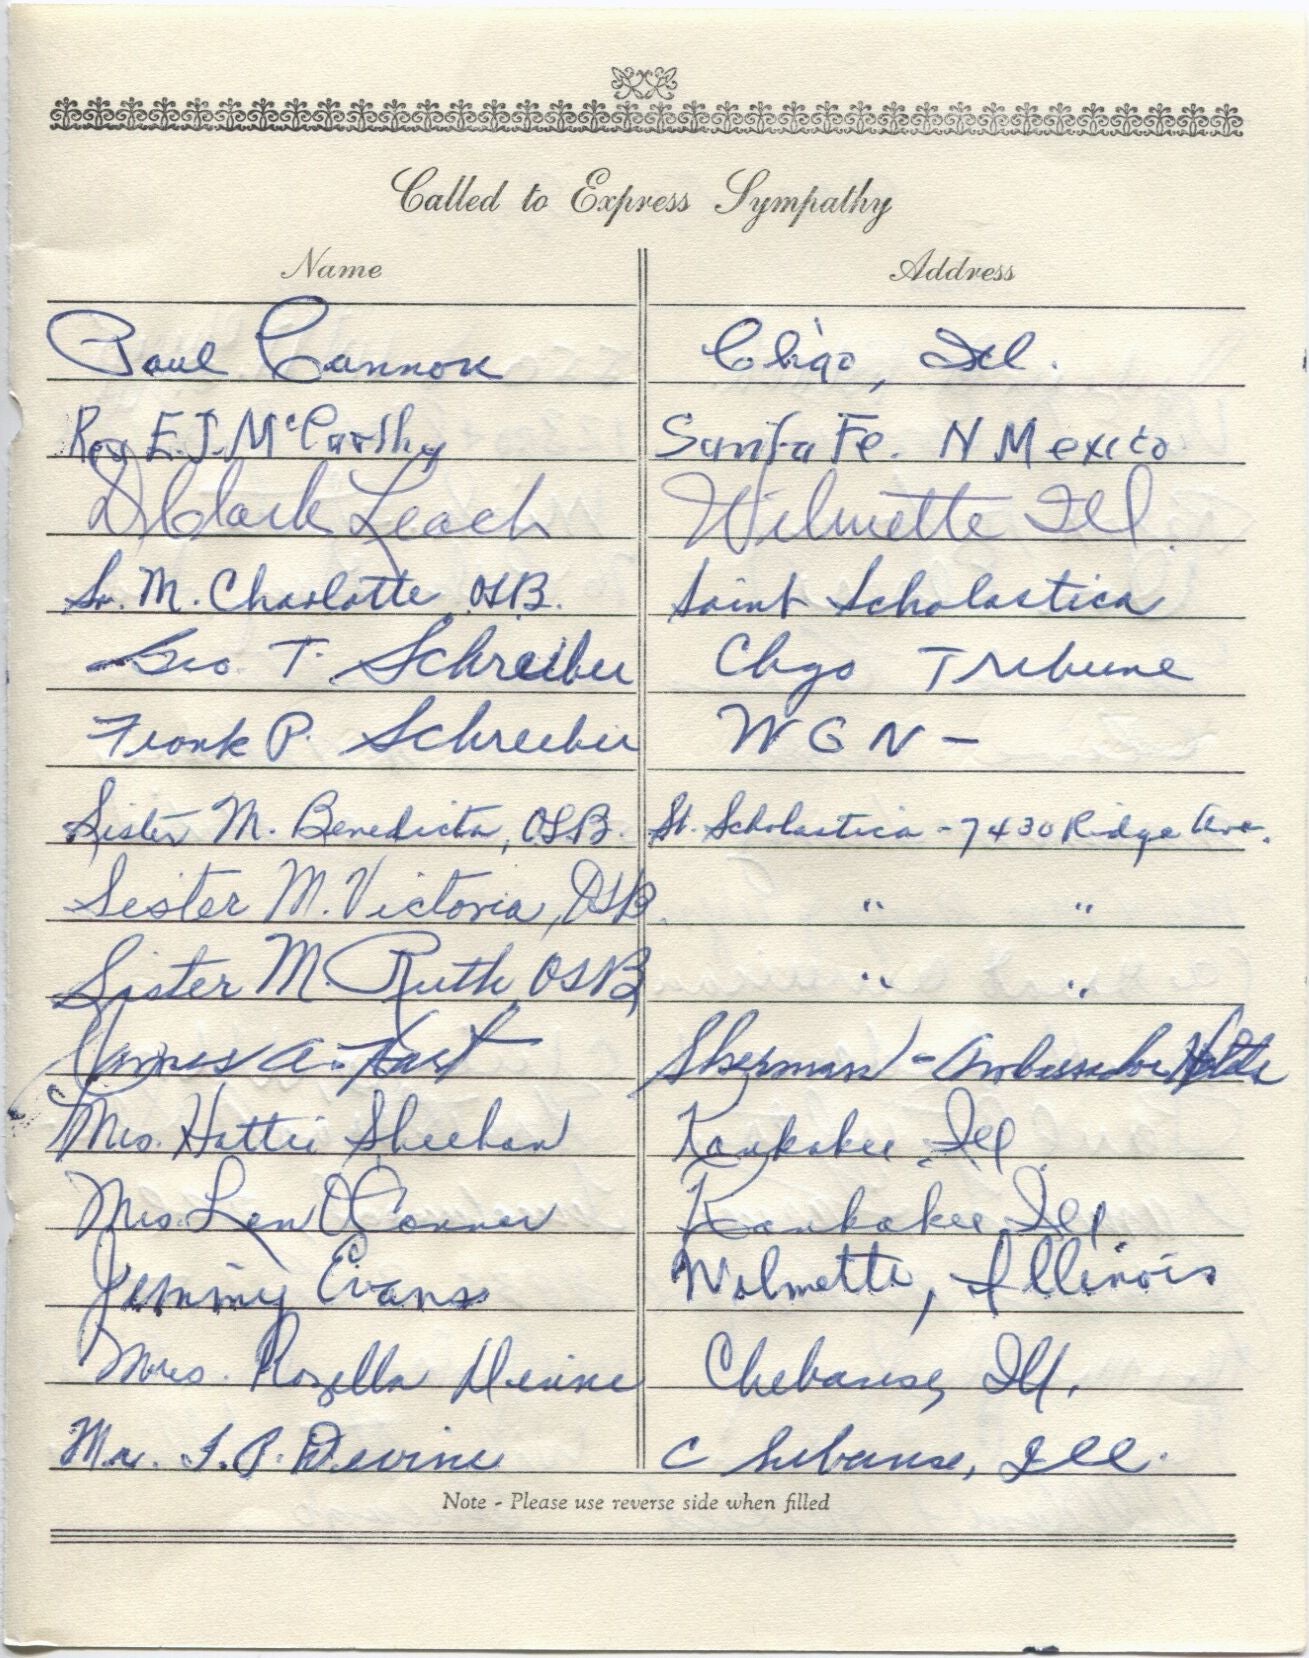 Called to Express Sympathy
Name Address
Paul Cannon Chgo, Ill.
Rev E.J. McCarthy Santa Fe. N Mexico
D Clark Leach Wilmette Ill.
Sr. M. Charlotte, OSB. Saint Scholastica
Geo. T. Schreiber Chgo Tribune
Frank P. Schreiber WGN -
Sister M. Benedicta, OSB. St. Scholastica - 7430 Ridge Ave.
Sister M. Victoria, OSB. " "
Sister M. Ruth, OSB " "
James A. Hart Sherman - Ambassador Hotels
Mrs. Hattie Sheehan Kankakee Ill
Mrs. Len O'Connor Kankakee, Ill.
Jimmy Evans Wilmette, Illinois
Mrs. Rozella Devine Chebanse, Ill.
Mr. J.P. Devine Chebanse, Ill.
Note - Please use reverse side when filled